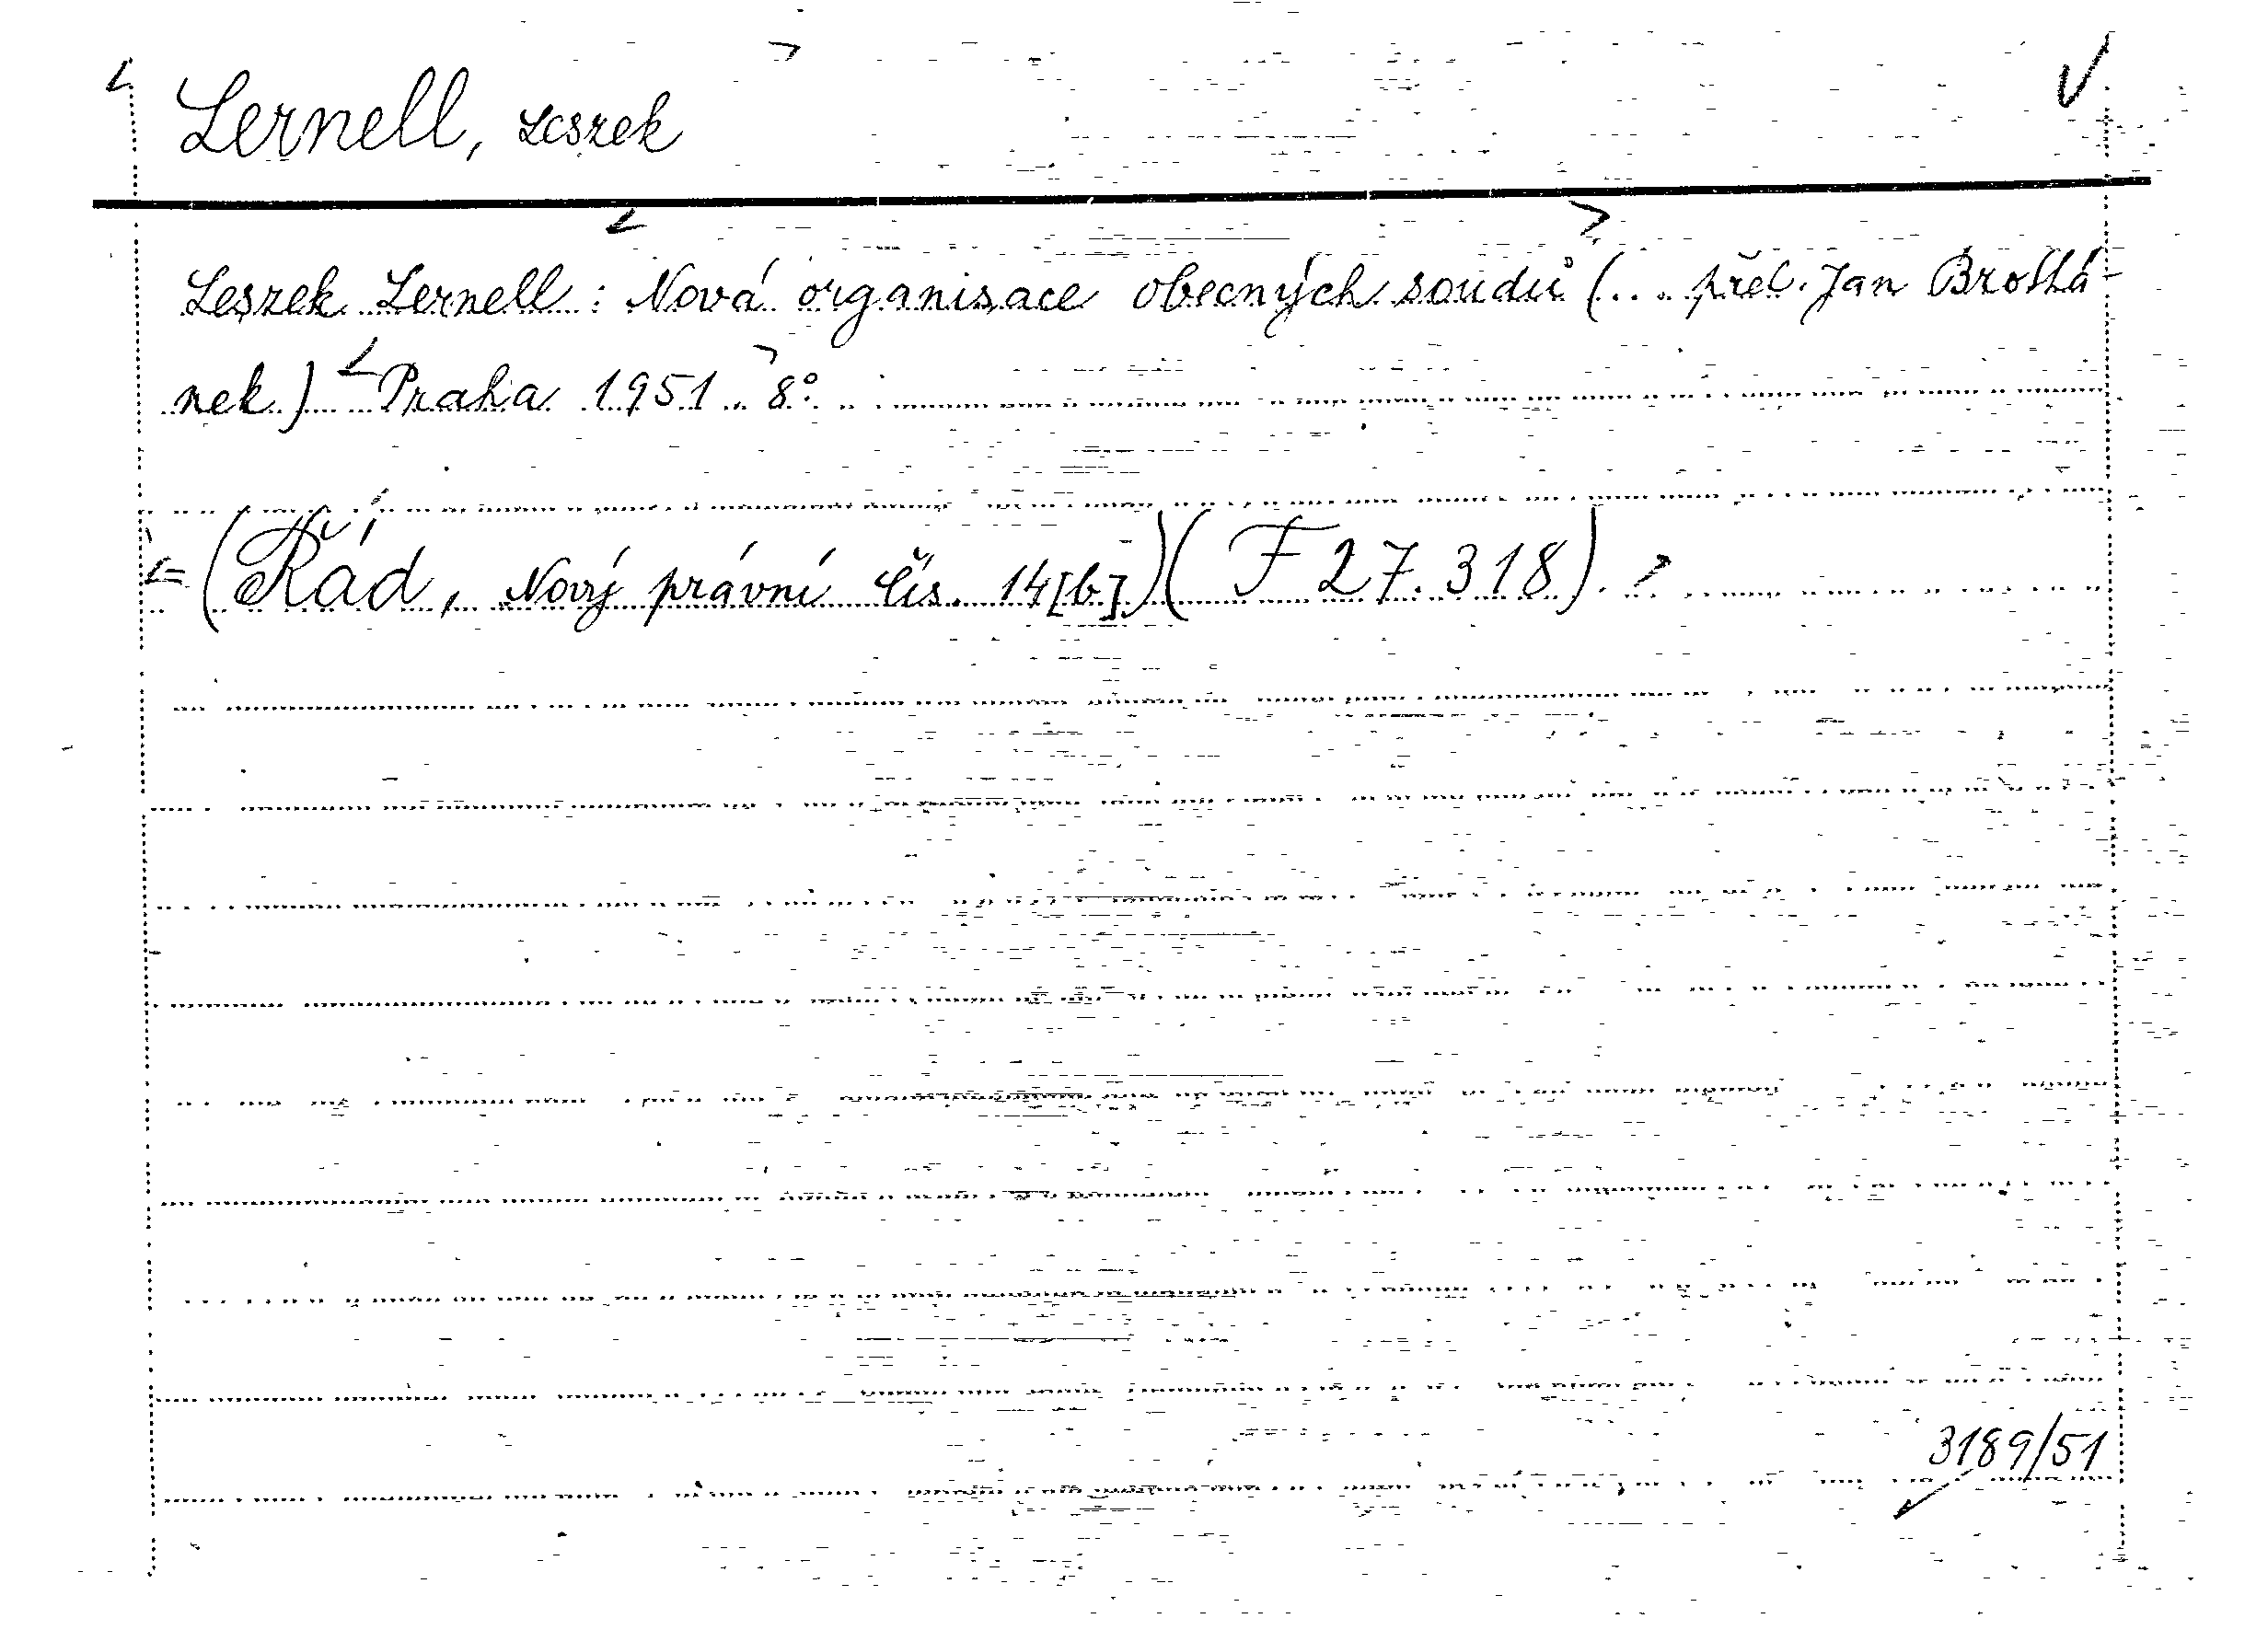 Lernell, Leszek
Leszek Lernell: Nová organisace obecných soudů (... přel. Jan Brotá-
nek) Praha 1951. 8°.
= (Řád, Nový právní čís. 14[b]) (F 27.318).
3189/51